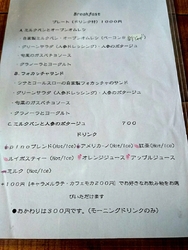 Breakfast
プレート(ドリンク付) 1000円
A.ミルクパンとオープンオムレツ
・自家製ミルクパン・オープンオムレツ(ベーコン)
・グリーンサラダ(人参ドレッシング)・人参のポタージュ
・旬菜のガスパチョソース
・グラノーラとヨーグルト
B.フォカッチャサンド
・シナモロールエズローの自家製フォカッチャのサンド
・グリーンサラダ(人参ドレッシング)・人参のポタージュ
・旬菜のガスパチョソース
・グラノーラとヨーグルト
C.ミルクパンと人参のポタージュ 700
ドリンク
ブレンド(Hot/Ice) アメリカーノ(Hot/Ice) 紅茶(Hot/Ice)
ルイボスティー(Hot/Ice) オレンジジュース アップルジュース
ミルク(Hot/Ice)
+100円(キャラメルラテ・カフェモカ)200円 でお好きなお飲み物をお選
びいただけます
●おかわりは300円です。(モーニングドリンクのみ)